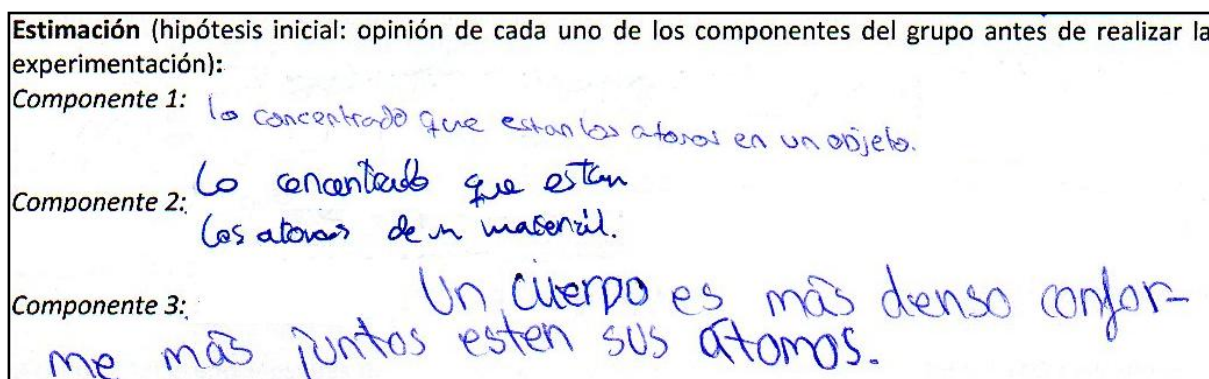 Estimación (hipótesis inicial: opinión de cada uno de los componentes del grupo antes de realizar la
experimentación):
Componente 1: lo concentrado que estan los atomos en un objeto.
Componente 2: Lo concentrado que estan
los atomos de un material.
Componente 3: Un cuerpo es más denso confor-
me más juntos esten sus átomos.